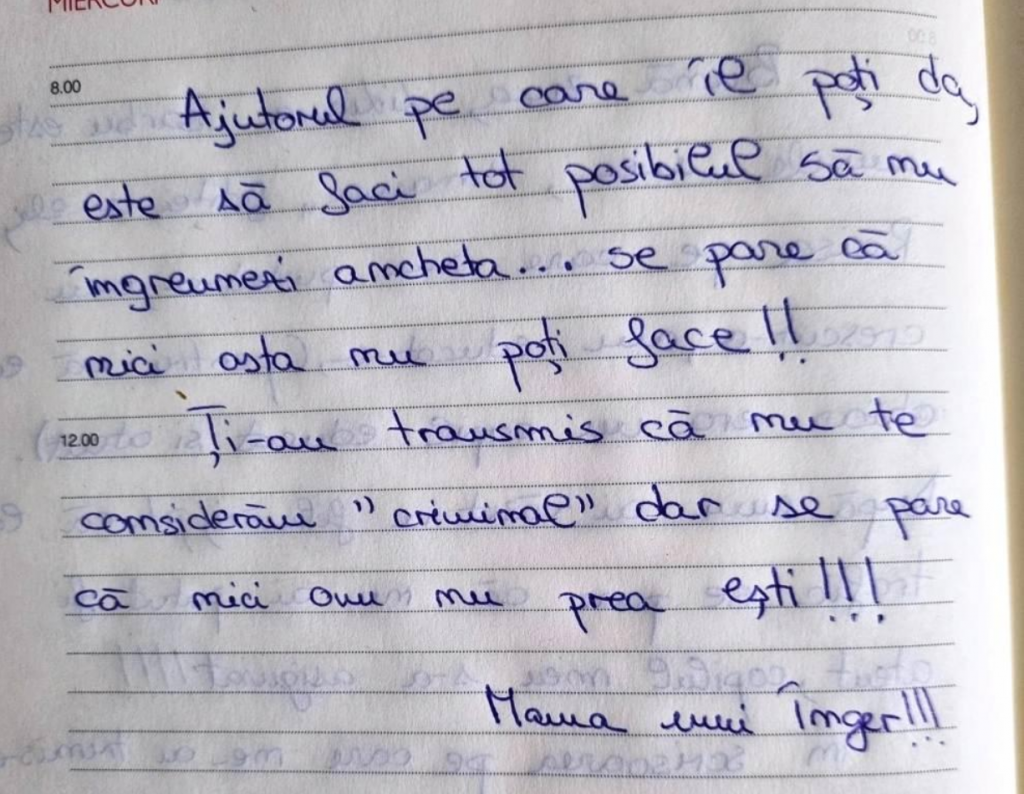 MIERCURI
8.00
Ajutorul pe care îl poți da,
este să faci tot posibilul să nu
îngreunezi ancheta... se pare că
nici asta nu poți face!!
12.00
Ți-am transmis că nu te
considerăm "criminal" dar se pare
că nici om nu prea ești!!!
Mama unui Înger!!!